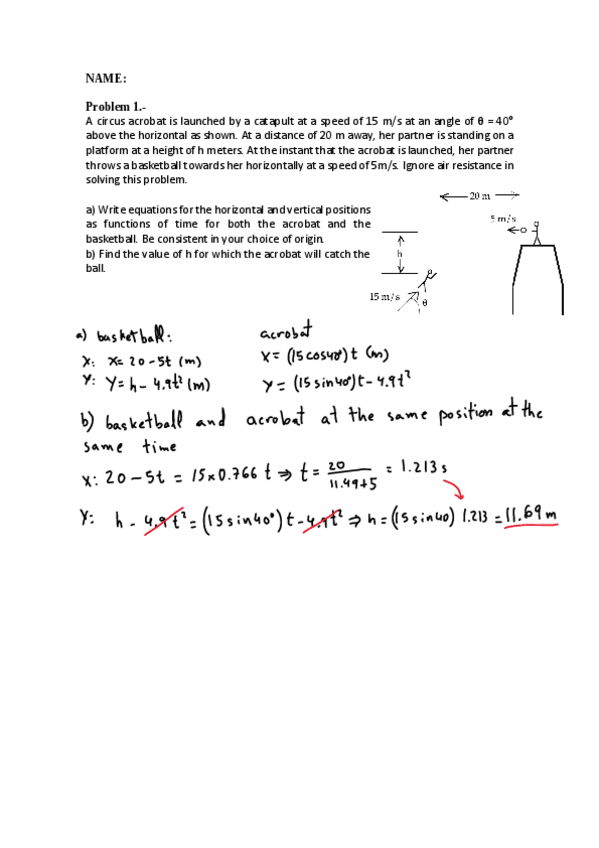 NAME:
Problem 1.-
A circus acrobat is launched by a catapult at a speed of 15 m/s at an angle of θ = 40°
above the horizontal as shown. At a distance of 20 m away, her partner is standing on a
platform at a height of h meters. At the instant that the acrobat is launched, her partner
throws a basketball towards her horizontally at a speed of 5m/s. Ignore air resistance in
solving this problem.
a) Write equations for the horizontal and vertical positions
as functions of time for both the acrobat and the
basketball. Be consistent in your choice of origin.
b) Find the value of h for which the acrobat will catch the
ball.
20 m
5 m/s
h
15 m/s
θ
a) basketball: acrobat
x: x= 20-5t (m) x = (15cos40°)t (m)
y: y= h - 4.9t² (m) y = (15 sin40°)t - 4.9t²
b) basketball and acrobat at the same position at the
same time
x: 20-5t = 15×0.766 t ⇒ t = 20/(11.49+5) = 1.213 s
y: h - 4.9t² = (15sin40°)t - 4.9t² ⇒ h = (15sin40) 1.213 = 11.69 m